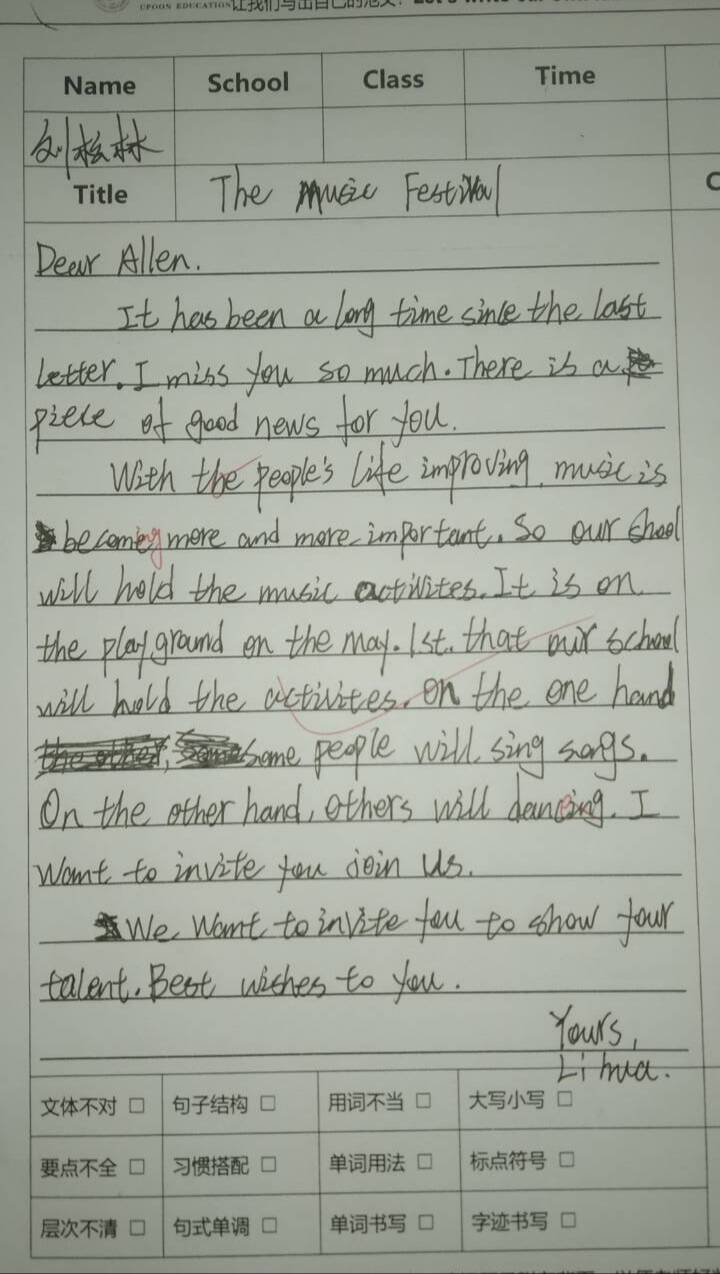 UPOON EDUCATION 让我们写出自己的范文!
Name School Class Time
刘松林
Title The Music Festival
Dear Allen.
It has been a long time since the last
letter. I miss you so much. There is a
piece of good news for you.
With the people's life improving, music is
becoming more and more important. So our shool
will hold the music activites. It is on
the playground on the may. 1st. that our school
will hold the activites. On the one hand
, some people will sing songs.
On the other hand, others will dancing. I
want to invite you join us.
We want to invite you to show your
talent. Best wishes to you.
Yours,
Li hua.
文体不对 □ 句子结构 □ 用词不当 □ 大写小写 □
要点不全 □ 习惯搭配 □ 单词用法 □ 标点符号 □
层次不清 □ 句式单调 □ 单词书写 □ 字迹书写 □